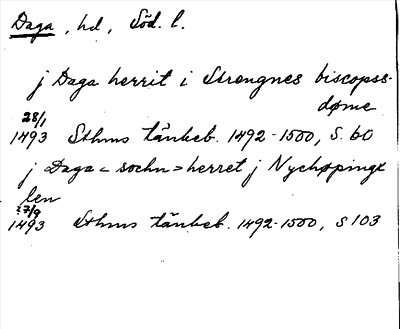 Daga, hd, Söd. l.
j Daga herrit i Strengnes biscopss-
døme
28/1
1493 Sthms tänkeb. 1492-1500, S. 60
j Daga = sochn = herret j Nychøpings
len
27/9
1493 Sthms tänkeb. 1492-1500, S 103